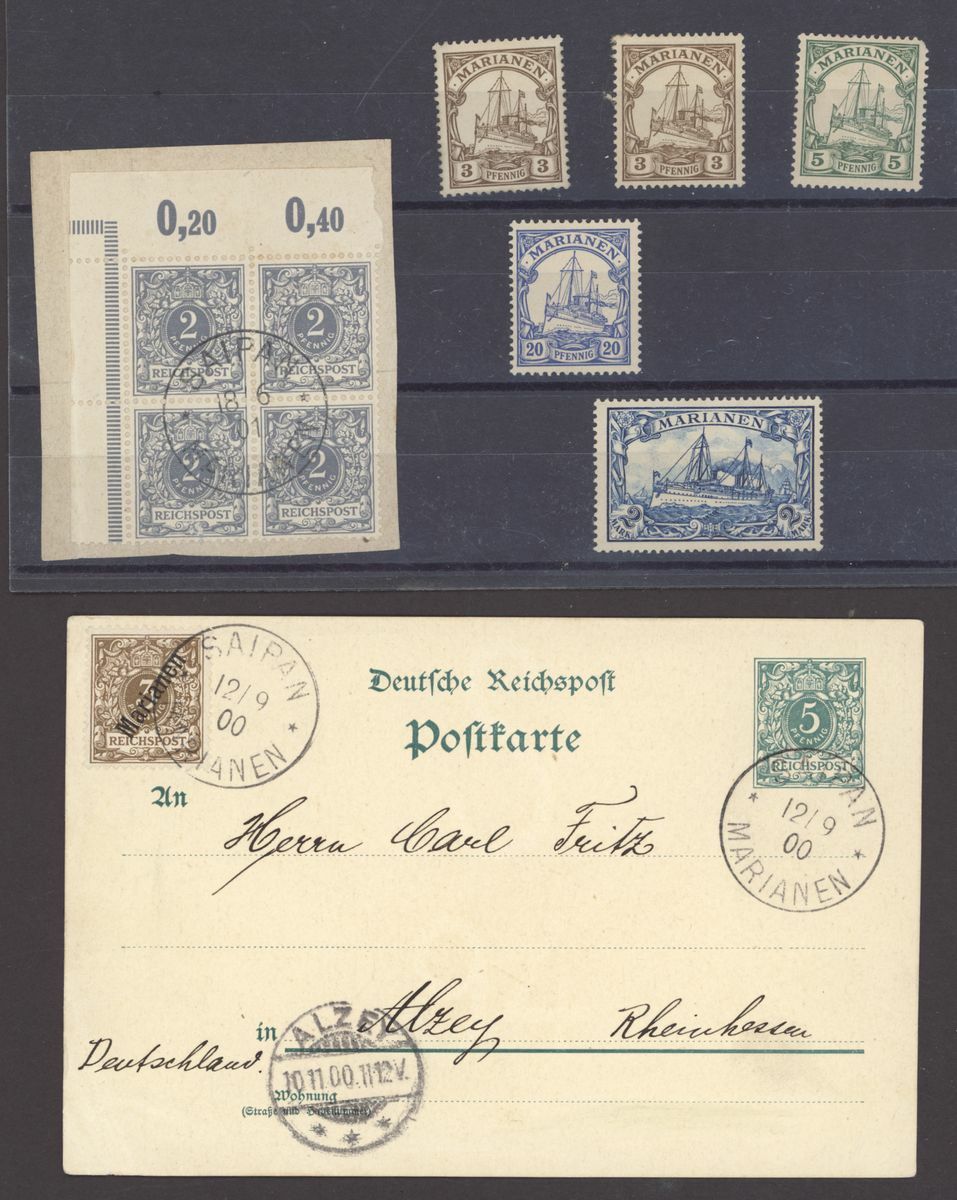 MARIANEN
3 PFENNIG 3
MARIANEN
3 PFENNIG 3
MARIANEN
5 PFENNIG 5
0,20 0,40
2 2
PFENNIG
REICHSPOST REICHSPOST
2 2
PFENNIG PFENNIG
REICHSPOST REICHSPOST
SAIPAN
18 6
01
MARIANEN
MARIANEN
20 PFENNIG 20
MARIANEN
2 MARK 2 MARK
3
Marianen
REICHSPOST
SAIPAN
12/9
00
MARIANEN
Deutsche Reichspost
Postkarte
5
PFENNIG
REICHSPOST
SAIPAN
12/9
00
MARIANEN
An
Herrn Carl Fritz
in Alzey Rheinhessen
Deutschland.
ALZEY
10.11.00.11-12V.
Wohnung
(Straße und Hausnummer)